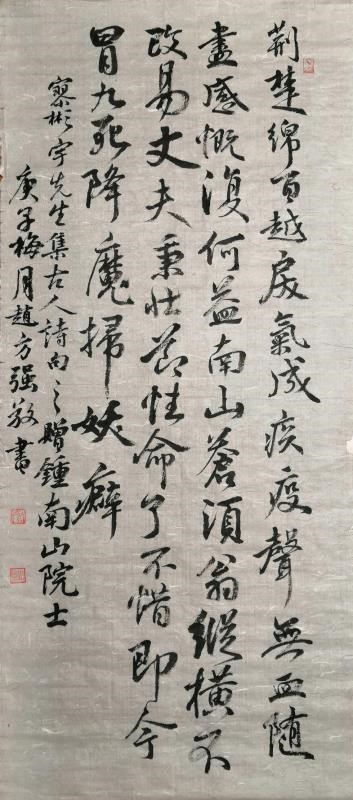 荆楚绵百越戾氣成疾疫聲無血随
盡感慨復何益南山蒼須翁縱橫不
改易丈夫秉壮節性命了不惜即今
冒九死降魔掃妖癖
寥彬宇先生集古人詩句之贈鍾南山院士
庚子梅月趙方强敬書